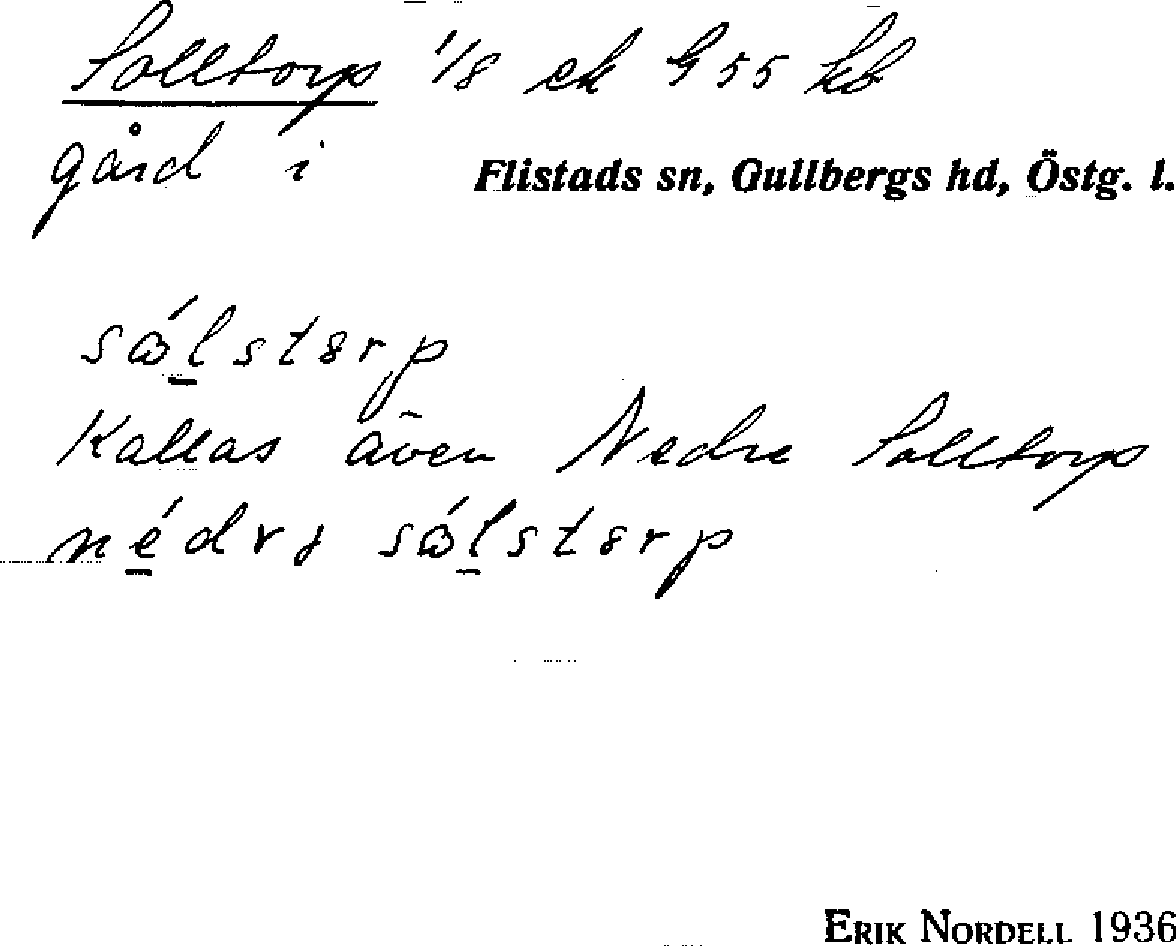 Solltorp 1/8 ek G 55 kb
gård i Flistads sn, Gullbergs hd, Östg. l.
sɷ́lstɜrp
Kallas även Nedre Solltorp
nédrə sɷ́lstɜrp
ERIK NORDELL 1936